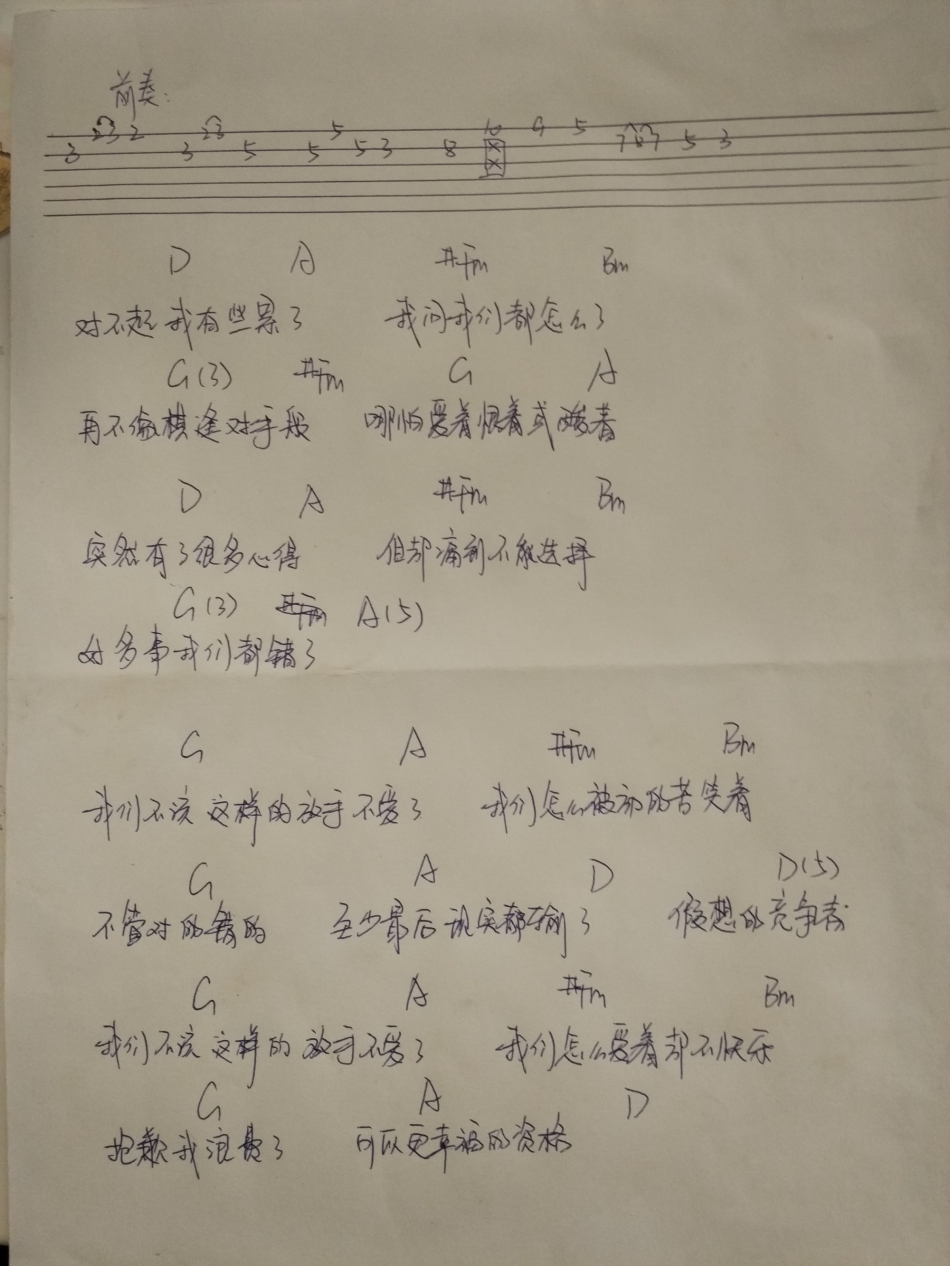 前奏:
3 2 3 2 3 2 3 5 5 5 5 3 8 10 X X 9 5 7 8 7 5 3
D A #Fm Bm
对不起我有些累了 我问我们都怎么了
G(3) #Fm G A
再不像棋逢对手般 哪怕爱着恨着或酸着
D A #Fm Bm
突然有了很多心得 但却痛到不能选择
G(3) #Fm A(5)
好多事我们都错了
G A #Fm Bm
我们不该这样的放手不爱了 我们怎么被动的苦笑着
G A D D(5)
不管对的错的 至少最后现实都输了 假想的竞争者
G A #Fm Bm
我们不该这样的放手不爱了 我们怎么爱着却不快乐
G A D
抱歉我浪费了 可以更幸福的资格